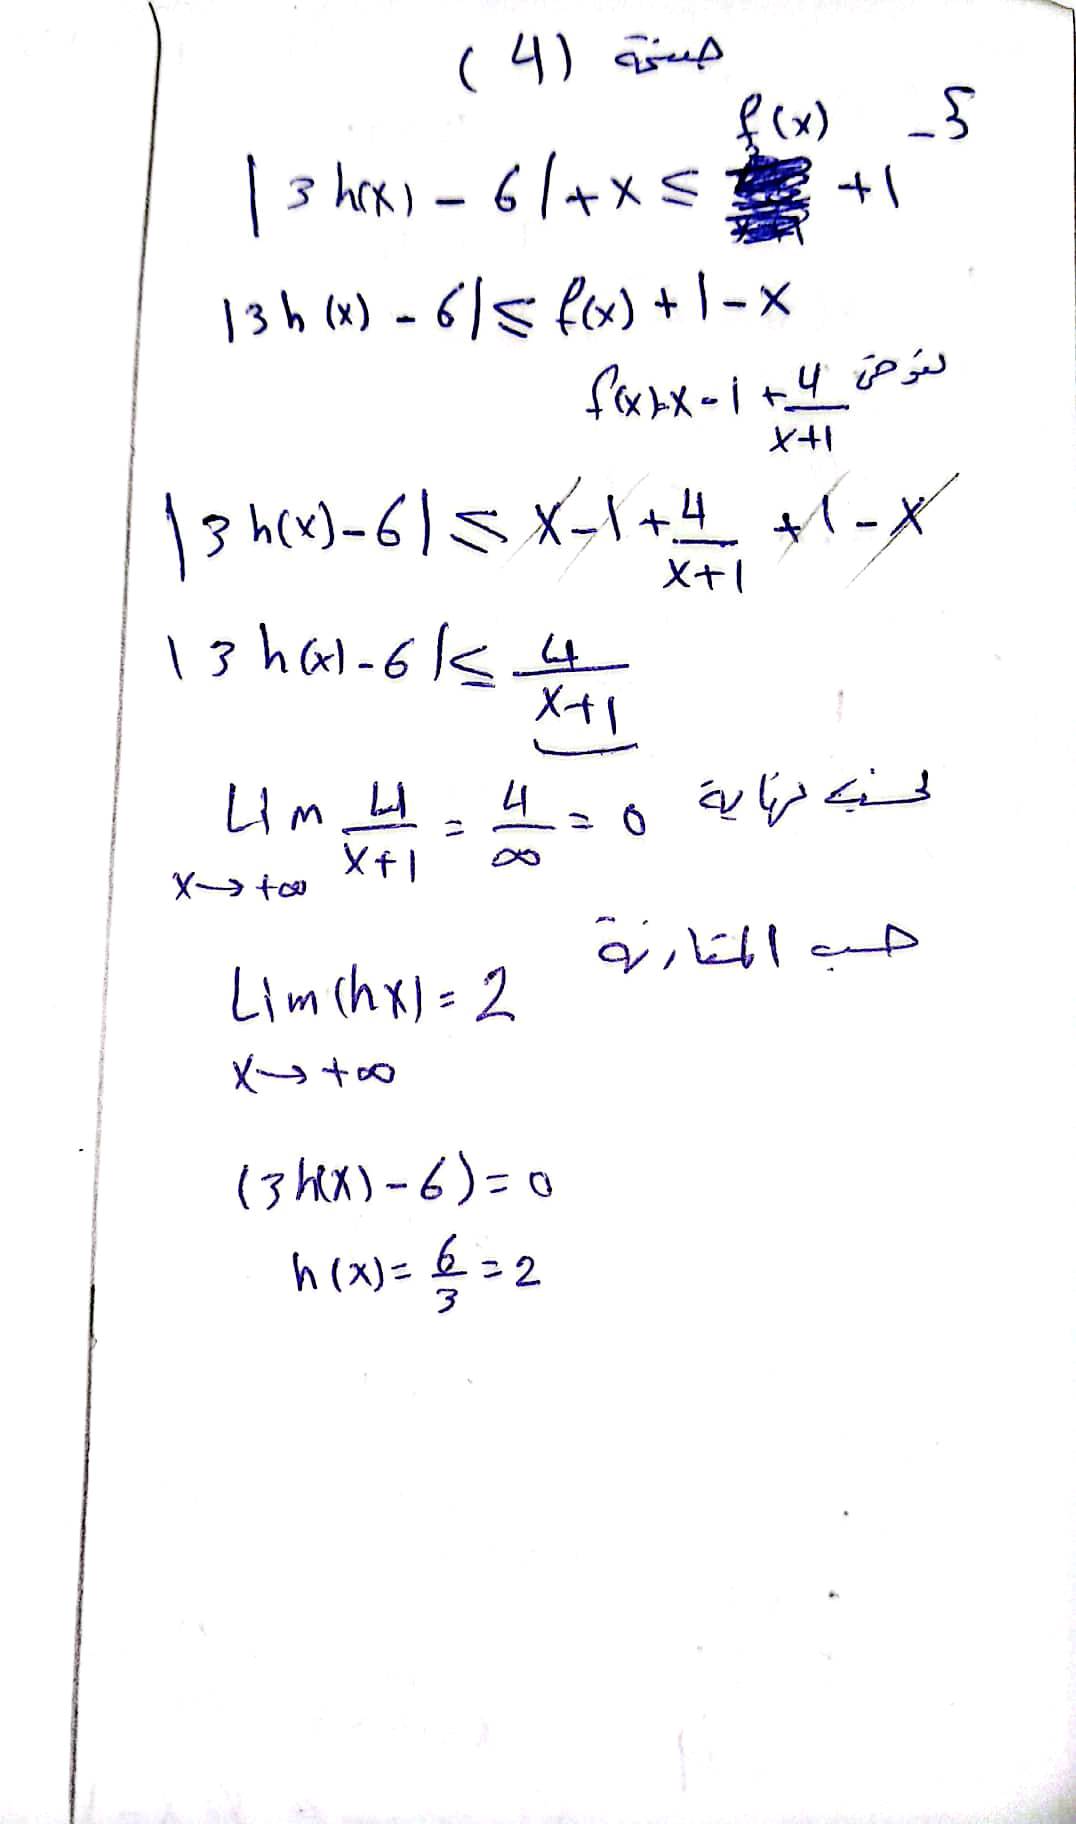 (4) صفحة
5-
|3h(x) - 6| + x ≤ f(x) + 1
|3h(x) - 6| ≤ f(x) + 1 - x
نعوض f(x) = x - 1 + 4/(x+1)
|3h(x) - 6| ≤ x - 1 + 4/(x+1) + 1 - x
|3h(x) - 6| ≤ 4/(x+1)
نهاية Lim x→+∞ 4/(x+1) = 4/∞ = 0
حسب المقارنة
Lim (hx) = 2
x→+∞
(3h(x) - 6) = 0
h(x) = 6/3 = 2